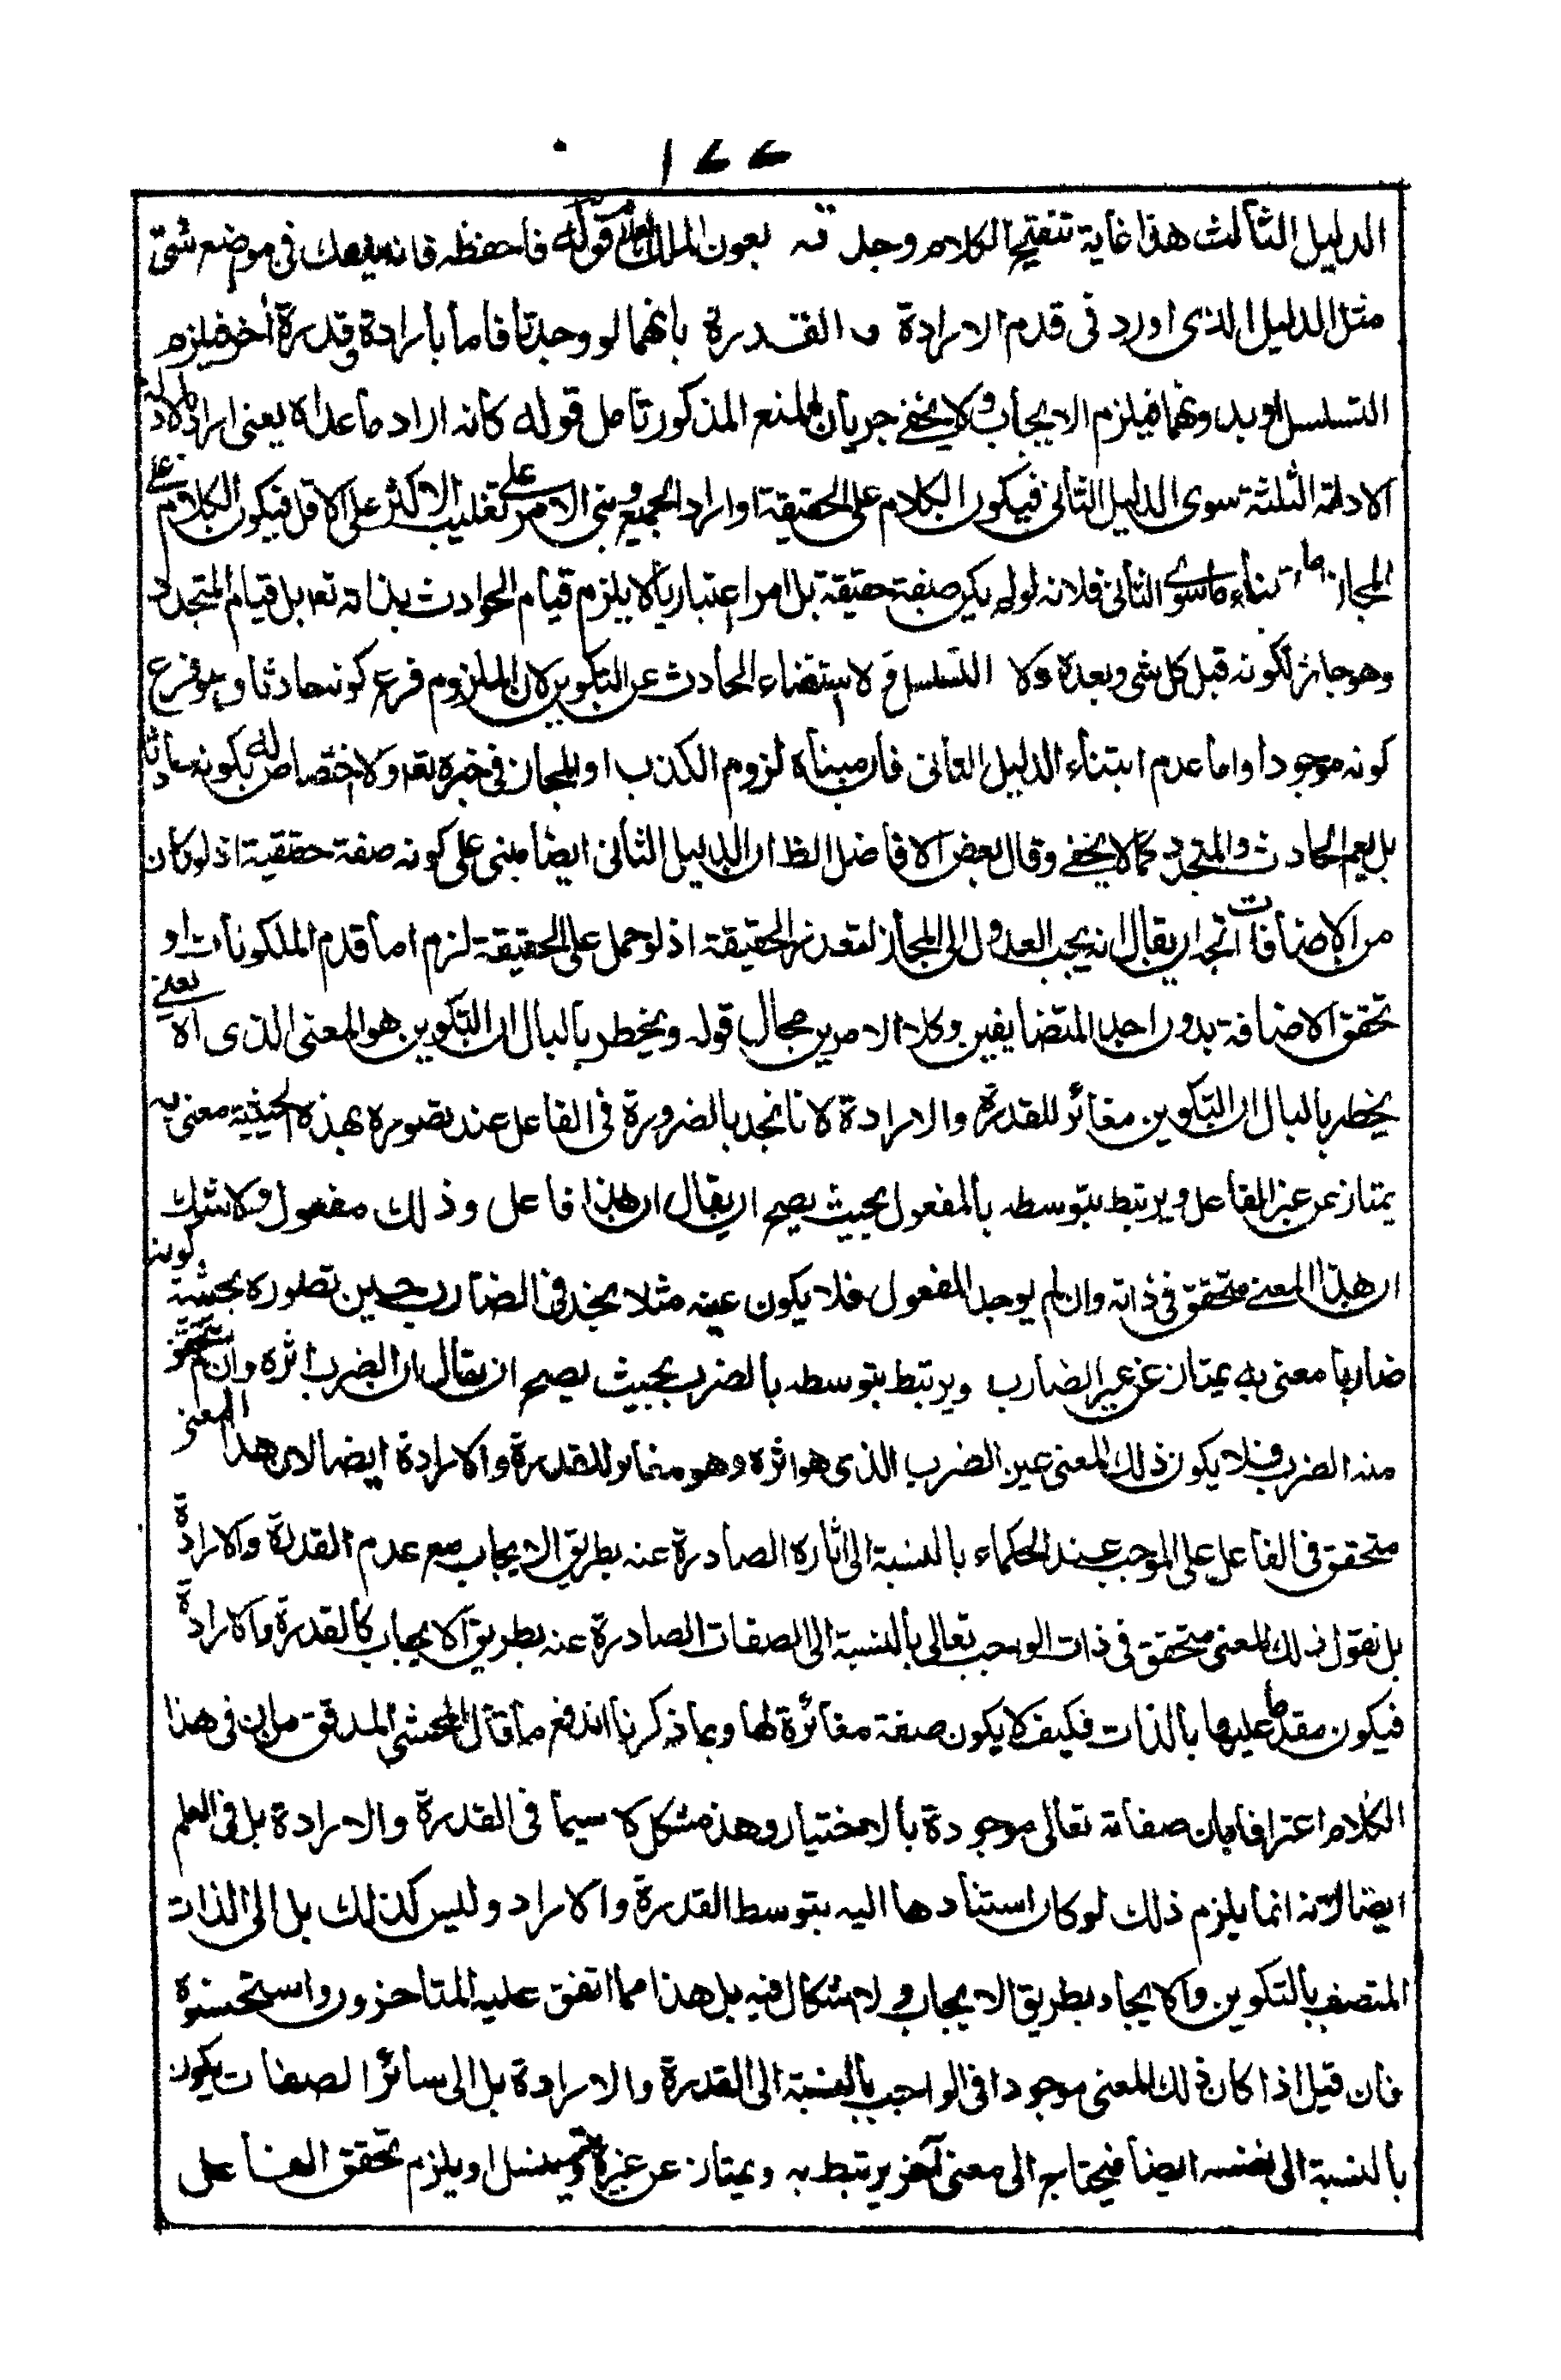 ١٧٧
الدليل الثالث هذا غاية تنقيح الكلام وجدته بعون الملك العلام قوله فاحفظه فانه ينفعك في موضع شتى
مثل الدليل الذي اورد في قدم الارادة و القدرة بانهما لو وجدتا فاما بارادة وقدرة أخر فيلزم
التسلسل او بدونهما فيلزم الايجاب ولا يخفى جريان المنع المذكور تامل قوله كانه اراد ما عداه يعني اراد بالادلة
الادلة الثلثة سوى الدليل الثاني فيكون الكلام على الحقيقة او اراد الجميع وبنى الامر على تغليب الاكثر على الاقل فيكون الكلام على
المجاز اما بناء ما سوى الثاني فلانه لو لم يكن صفة حقيقة بل امرا اعتباريا لا يلزم قيام الحوادث بذاته تعه بل قيام المتجدد
وهو جائز لكونه قبل كل شى وبعده ولا التسلسل لاستقضاء الحادث عن التكوين لان الملزوم فرع كونه حادثا وهو فرع
كونه موجودا واما عدم ابتناء الدليل الثاني فان مبناه لزوم الكذب او المجاز في خبره تعه ولا اختصاص له بكونه حادثا
بل يعم الحادث والمتجدد كما لا يخفى وقال بعض الافاضل الظ ان الدليل الثاني ايضا مبني على كونه صفة حقيقية اذ لو كان
من الاضافات اتجه ان يقال انه يجب العدول الى المجاز لتعذر الحقيقة اذ لو حمل على الحقيقة لزم اما قدم المكونات او
تحقق الاضافة بدون احد المتضايفين وكلا الامرين محال قوله ويخطر بالبال ان التكوين هو المعنى الذي اه يعنى
يخطر بالبال ان التكوين مغائر للقدرة والارادة لانا نجد بالضرورة في الفاعل عند تصوره بهذه الحيثية معنى به
يمتاز عن غير الفاعل ويرتبط بتوسطه بالمفعول بحيث يصح ان يقال ان هذا فاعل وذلك مفعول ولا شك
ان هذا المعنى متحقق في ذاته وان لم يوجد المفعول فلا يكون عينه مثلا يجد في الضارب حين تصوره بحيثية كونه
ضاربا معنى به يمتاز عن غير الضارب ويرتبط بتوسطه بالضرب بحيث يصح ان يقال ان الضرب اثره وان لم يتحقق
منه الضرب فلا يكون ذلك المعنى عين الضرب الذي هو اثره وهو مغاير للقدرة والارادة ايضا لان هذا المعنى
متحقق في الفاعل على الموجب عند الحكماء بالنسبة الى اثاره الصادرة عنه بطريق الايجاب مع عدم القدرة والارادة
بل نقول ذلك المعنى متحقق في ذات الواجب تعالى بالنسبة الى الصفات الصادرة عنه بطريق الايجاب كالقدرة والارادة
فيكون مقدما عليها بالذات فكيف لا يكون صفة مغائرة لها وبما ذكرنا اندفع ما قال المحشي المدقق من ان في هذا
الكلام اعترافا بان صفاته تعالى موجودة بالاختيار وهذ مشكل لا سيما في القدرة والارادة بل في العلم
ايضا لانه انما يلزم ذلك لو كان استنادها اليه بتوسط القدرة والاراد وليس كذلك بل الى الذات
المتصف بالتكوين والايجاد بطريق الايجاب ولا اشكال فيه بل هذا مما اتفق عليه المتأخرون واستحسنوه
فان قيل اذا كان ذلك المعنى موجودا في الواجب بالنسبة الى القدرة والارادة بل الى سائر الصفات يكون
بالنسبة الى نفسه ايضا فيحتاج الى معنى آخر يرتبط به ويمتاز عن غيره ويتسلسل او يلزم تحقق الفاعل